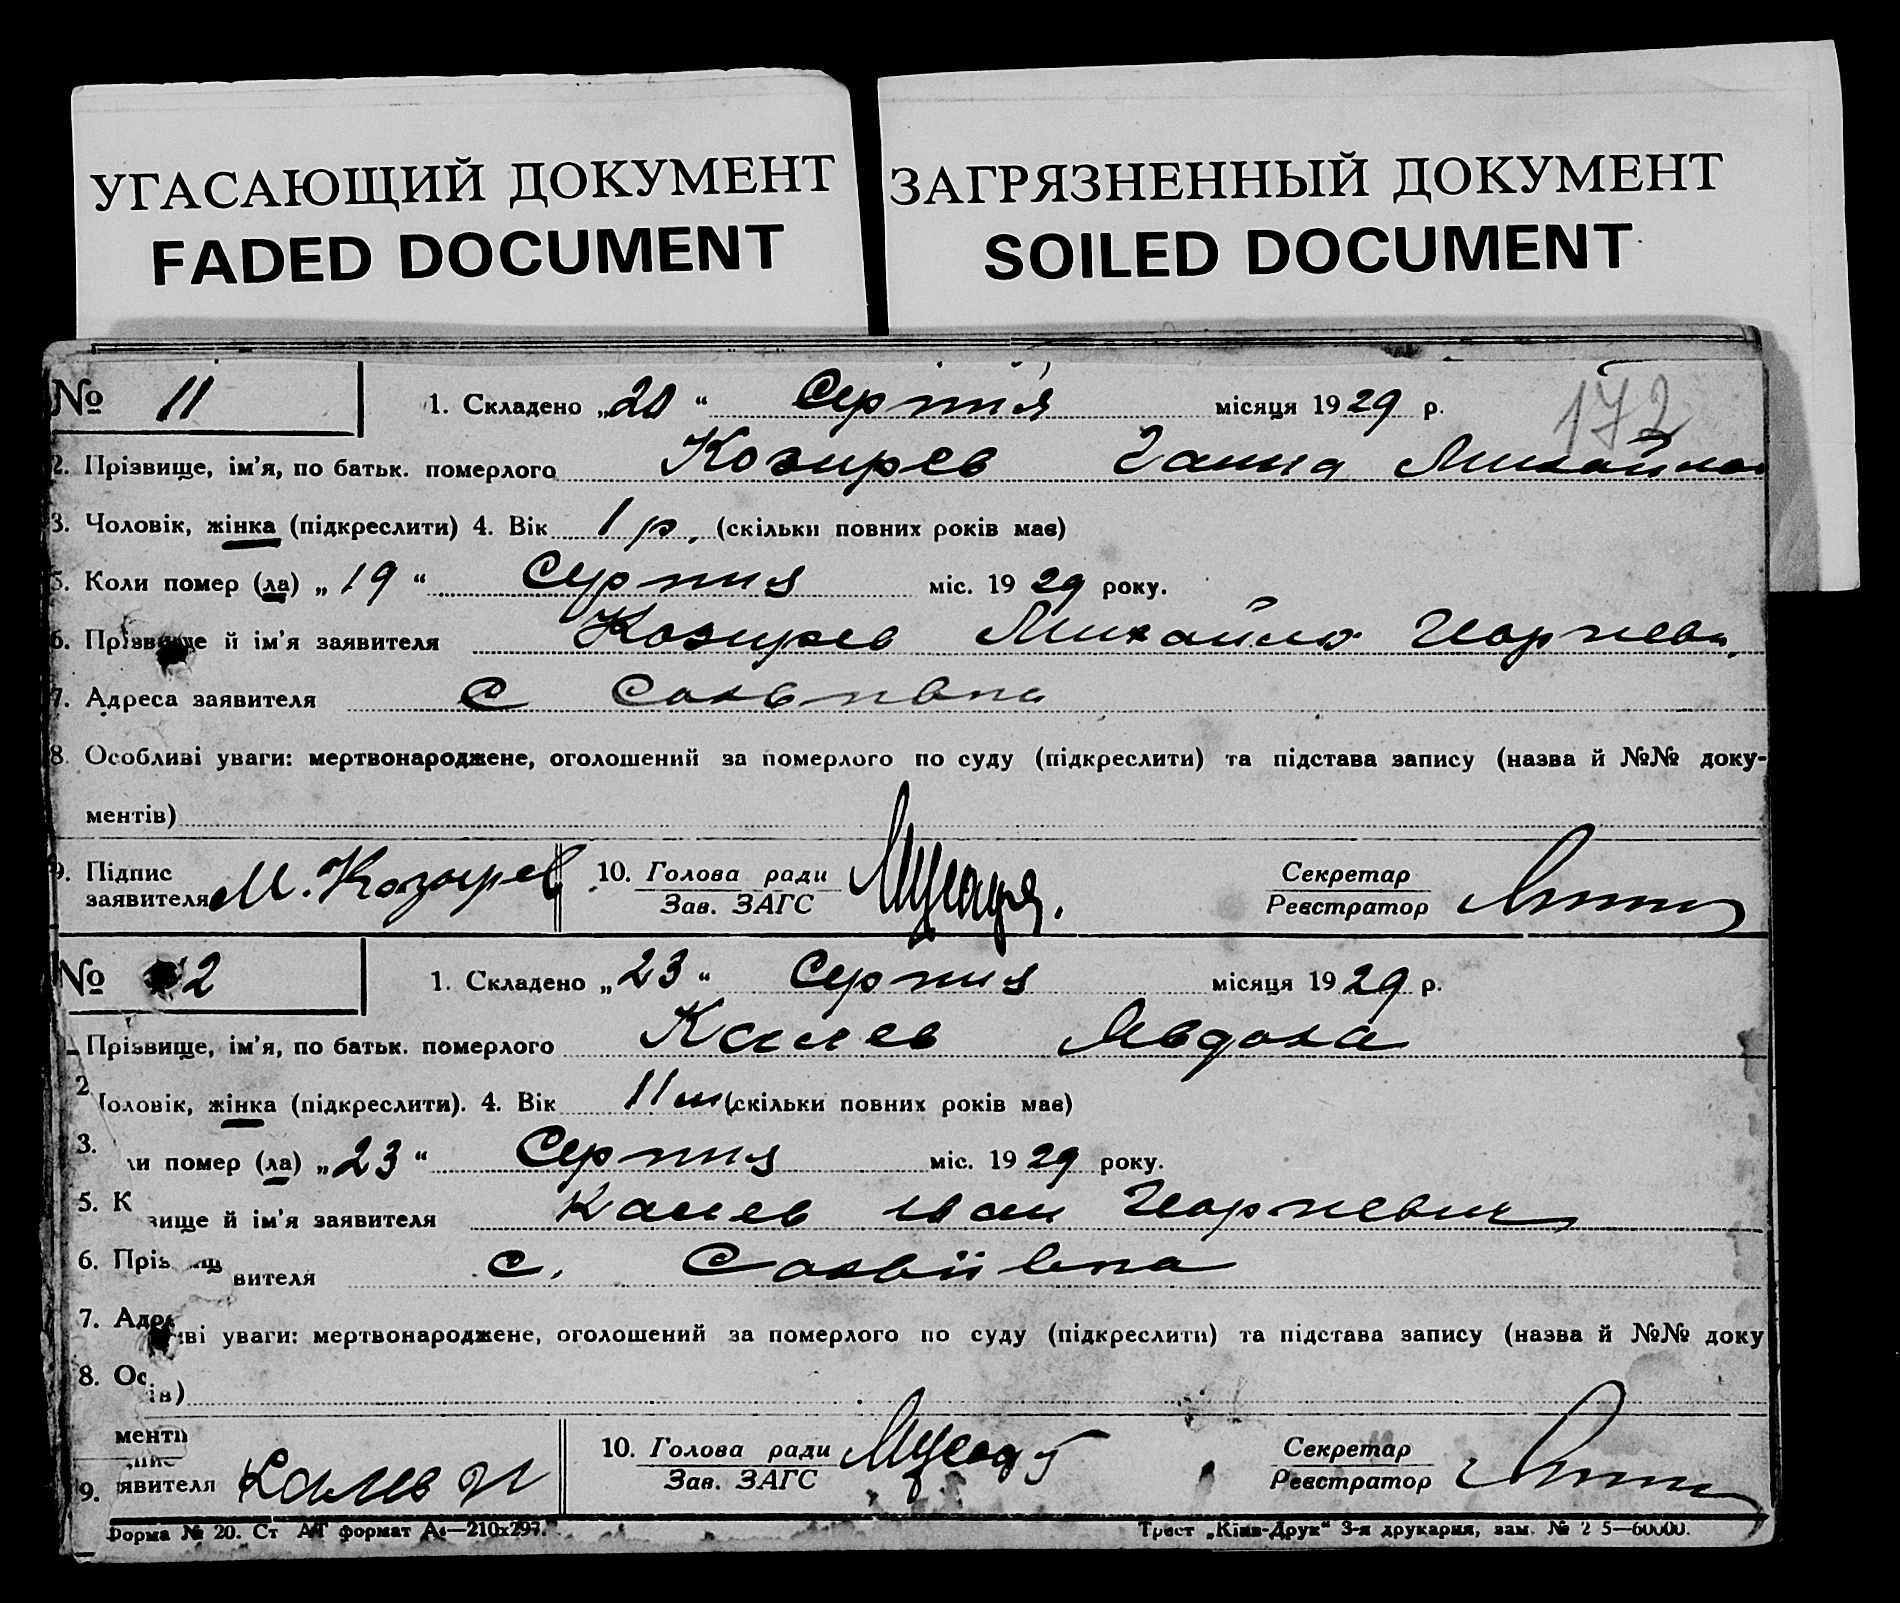 УГАСАЮЩИЙ ДОКУМЕНТ
FADED DOCUMENT
ЗАГРЯЗНЕННЫЙ ДОКУМЕНТ
SOILED DOCUMENT
172
№ 11
1. Складено „20“ Серпня місяця 1929 р.
2. Прізвище, ім'я, по батьк. померлого Козирев Ганна Михайлов
3. Чоловік, жінка (підкреслити) 4. Вік 1 р. (скільки повних років має)
5. Коли помер (ла) „19“ Серпня міс. 1929 року.
6. Прізвище й ім'я заявителя Козирев Михайло Георгієв
7. Адреса заявителя с
8. Особливі уваги: мертвонароджене, оголошений за померлого по суду (підкреслити) та підстава запису (назва й №№ доку-
ментів)
9. Підпис заявителя М. Козырев
10. Голова ради
Зав. ЗАГС
Секретар
Реєстратор
№ 2
1. Складено „23“ Серпня місяця 1929 р.
Прізвище, ім'я, по батьк. померлого Калев Явдоха
2
оловік, жінка (підкреслити). 4. Вік 11 м (скільки повних років має)
3.
ли помер (ла) „23“ Серпня міс. 1929 року.
5. К
звище й ім'я заявителя Калев Іван Георгиевич
6. Прізвищ
вителя с.
7. Адре
иві уваги: мертвонароджене, оголошений за померлого по суду (підкреслити) та підстава запису (назва й №№ доку
8. Ос
ів)
менті
9. явителя Калев
10. Голова ради
Зав. ЗАГС
Секретар
Реєстратор
Форма № 20. Ст формат А4—210х297.
Трест „Київ-Друк“ 3-я друкарня, зам. № 2 5—60000.